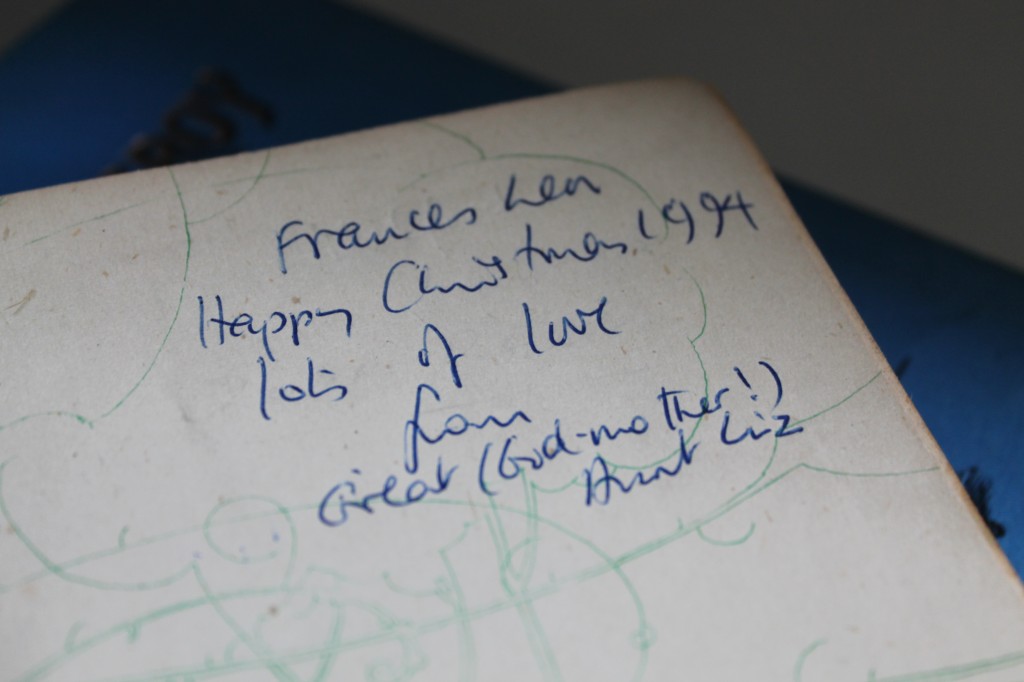 Frances Lea
Happy Christmas 1994
lots of love
from
Great (God-mother!)
Aunt Liz